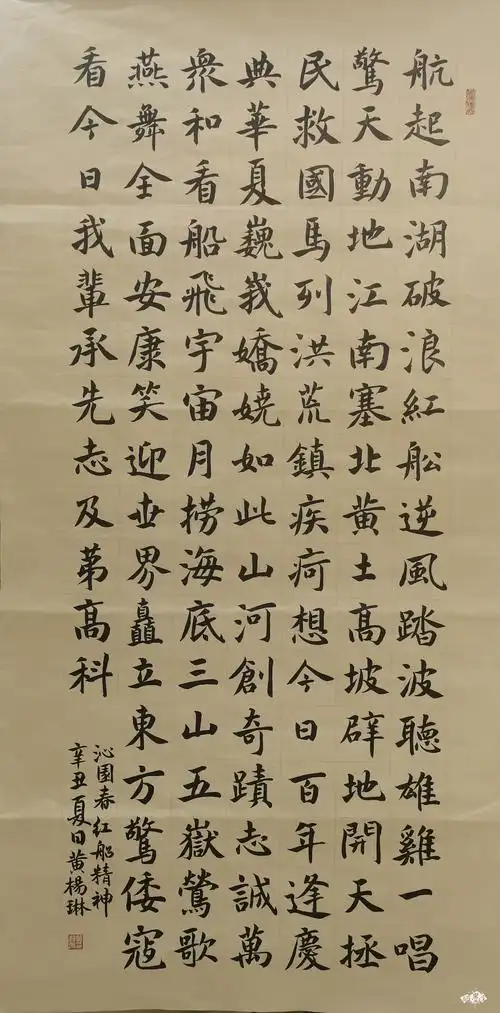 航起南湖破浪紅船逆風踏波聽雄雞一唱
驚天動地江南塞北黄土高坡辟地開天拯
民救國馬列洪荒鎮疾疴想今日百年逢慶
典華夏巍峩嬌嬈如此山河創奇蹟志誠萬
衆和看船飛宇宙月撈海底三山五嶽鶯歌
燕舞全面安康笑迎世界矗立東方驚倭寇
看今日我輩承先志及苐高科
沁園春紅船精神
辛丑夏日黄楊琳